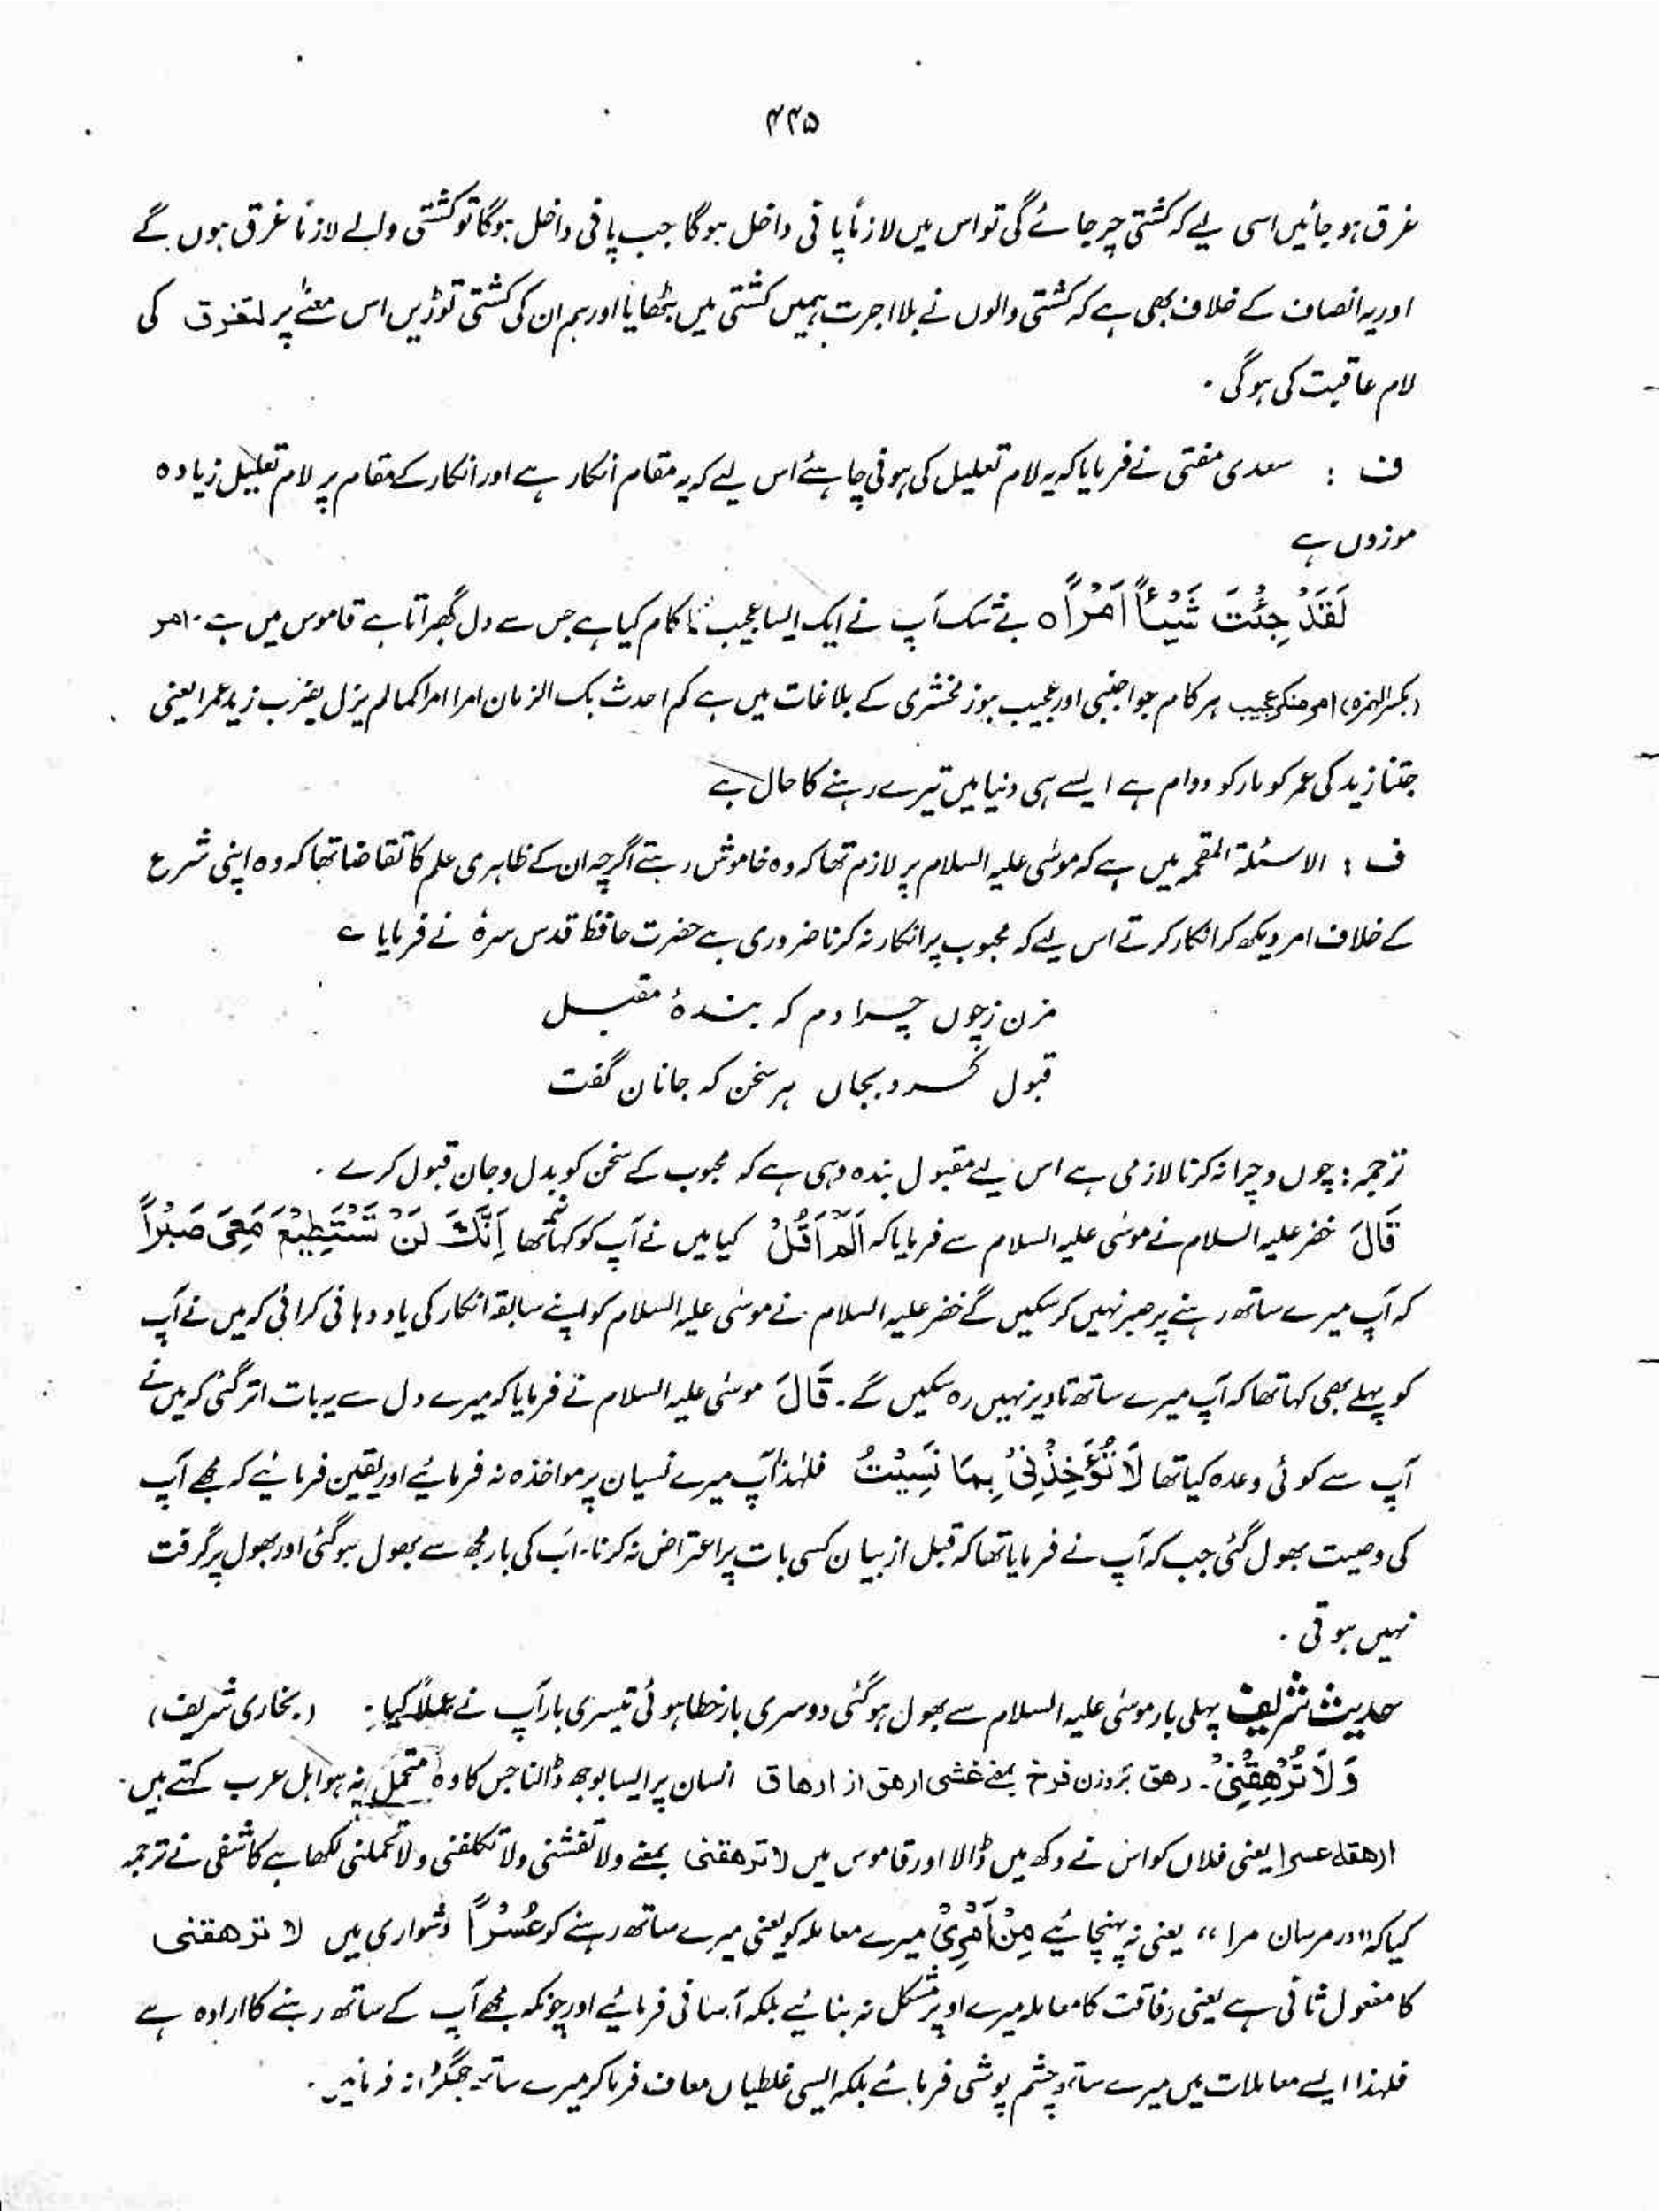 ۴۴۵
غرق ہو جائیں اسی لیے کہ کشتی چر جائے گی تو اس میں لازماً پانی داخل ہوگا جب پانی داخل ہوگا تو کشتی والے لازماً غرق ہوں گے
اور یہ انصاف کے خلاف بھی ہے کہ کشتی والوں نے بلا اجرت ہمیں کشتی میں بٹھایا اور ہم ان کی کشتی توڑیں اس معنے پر لتغرق کی
لام عاقبت کی ہوگی۔
ف : سعدی مفتی نے فرمایا کہ یہ لام تعلیل کی ہونی چاہئے اس لیے کہ یہ مقام انکار ہے اور انکار کے مقام پر لام تعلیل زیادہ
موزوں ہے
لَقَدْ جِئْتَ شَیْئًا اِمْرًا ہ بے شک آپ نے ایک ایسا عجیب کام کیا ہے جس سے دل گھبراتا ہے قاموس میں ہے۔ امر
(بکسر الہمزہ) امر منکر عجیب ہر کام جو اجنبی اور عجیب ہو زمخشری کے بلاغات میں ہے کم احدث بک الزمان امرا امرا کما لم یزل یضرب زید عمرا یعنی
جتنا زید کی عمر کو مار کو دوام ہے ایسے ہی دنیا میں تیرے رہنے کا حال ہے
ف : الاسئلۃ المقحمہ میں ہے کہ موسٰی علیہ السلام پر لازم تھا کہ وہ خاموش رہتے اگرچہ ان کے ظاہری علم کا تقاضا تھا کہ وہ اپنی شرع
کے خلاف امر دیکھ کر انکار کرتے اس لیے کہ محبوب پر انکار نہ کرنا ضروری ہے حضرت حافظ قدس سرہٗ نے فرمایا ؎
مزن زچوں چرا دم کہ بندۂ مقبل
قبول کرد بجاں ہر سخن کہ جاناں گفت
ترجمہ : چوں و چرا نہ کرنا لازمی ہے اس لیے مقبول بندہ وہی ہے کہ محبوب کے سخن کو بدل و جان قبول کرے ۔
قَالَ خضر علیہ السلام نے موسٰی علیہ السلام سے فرمایا کہ اَلَمْ اَقُلْ کیا میں نے آپ کو کہا نہ تھا اِنَّكَ لَنْ تَسْتَطِیْعَ مَعِیَ صَبْرًا
کہ آپ میرے ساتھ رہنے پر صبر نہیں کر سکیں گے خضر علیہ السلام نے موسٰی علیہ السلام کو اپنے سابقہ انکار کی یاد دہانی کرائی کہ میں نے آپ
کو پہلے بھی کہا تھا کہ آپ میرے ساتھ تادیر نہیں رہ سکیں گے۔ قَالَ موسٰی علیہ السلام نے فرمایا کہ میرے دل سے یہ بات اتر گئی کہ میں نے
آپ سے کوئی وعدہ کیا تھا لَا تُؤَاخِذْنِیْ بِمَا نَسِیْتُ فلہٰذا آپ میرے نسیان پر مواخذہ نہ فرمائیے اور یقین فرمائیے کہ مجھے آپ
کی وصیت بھول گئی جب کہ آپ نے فرمایا تھا کہ قبل از بیان کسی بات پر اعتراض نہ کرنا۔ اب کی بار مجھ سے بھول ہوگئی اور بھول پر گرفت
نہیں ہوتی ۔
حدیث شریف پہلی بار موسٰی علیہ السلام سے بھول ہوگئی دوسری بار خطا ہوئی تیسری بار آپ نے عملاً کیا۔ (بخاری شریف)
وَلَا تُرْھِقْنِیْ ۔ رھق بروزن فرخ بمعنے غشی ارھق از ارھاق انسان پر ایسا بوجھ ڈالنا جس کا وہ متحمل نہ ہو اہل عرب کہتے ہیں۔
ارھقہ عسرا یعنی فلاں کو اس نے دکھ میں ڈالا اور قاموس میں لا ترھقنی بمعنے ولا تغشنی ولا تکلفنی و لا تحملنی لکھا ہے کاشفی نے ترجمہ
کیا کہ "در مرسان مرا" یعنی نہ پہنچائیے مِنْ اَمْرِیْ میرے معاملہ کو یعنی میرے ساتھ رہنے کو عُسْرًا دشواری میں لا ترھقنی
کا مفعول ثانی ہے یعنی رفاقت کا معاملہ میرے اوپر مشکل نہ بنائیے بلکہ آسانی فرمائیے اور چونکہ مجھے آپ کے ساتھ رہنے کا ارادہ ہے
فلہذا ایسے معاملات میں میرے ساتھ چشم پوشی فرمائے بلکہ ایسی غلطیاں معاف فرما کر میرے ساتھ جھگڑا نہ فرمائیں۔